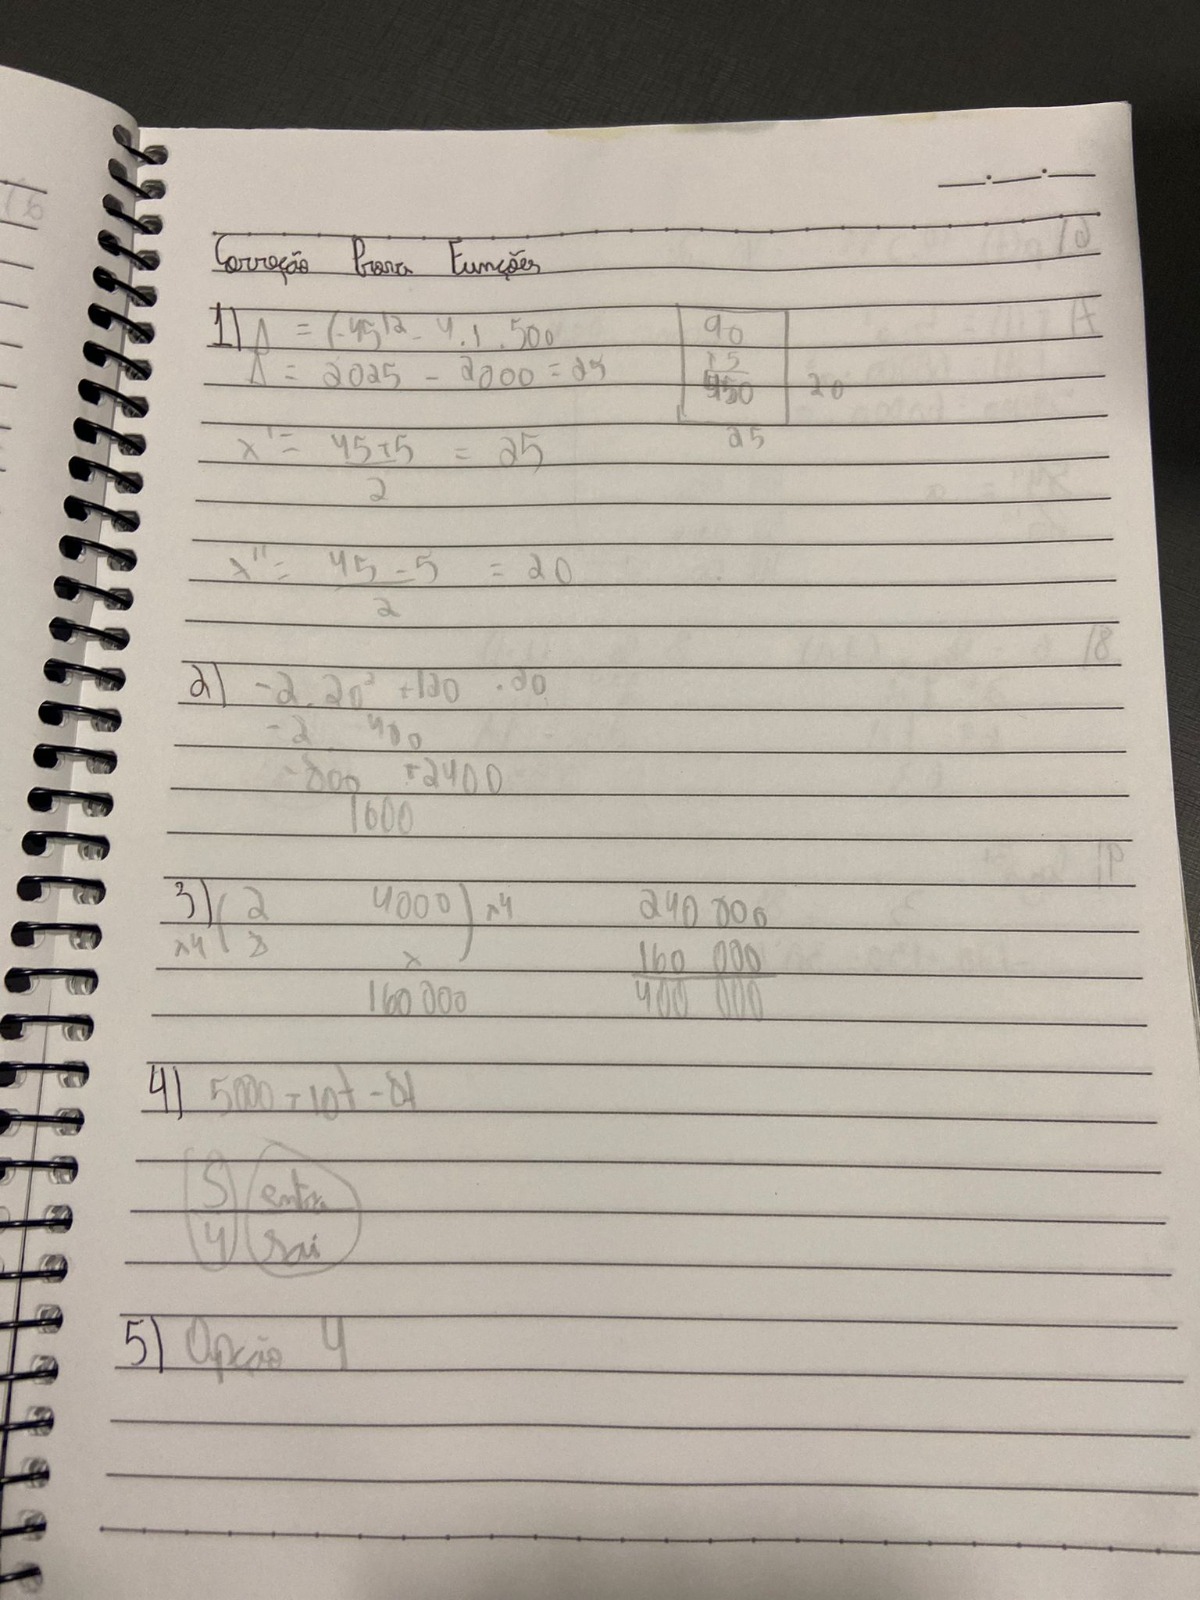 Correção Prova Funções
1) Δ = (-45)² - 4.1.500
Δ = 2025 - 2000 = 25
90
450
20
25
x' = 45+5 = 25
2
x'' = 45-5 = 20
2
2) -2.20² +120 .20
-2 400
-800 +2400
1600
3) ( 2 4000 ) x4 240 000
x4 x 160 000
160 000 400 000
4) 5000 + 10t - 8t
5 entra
4 sai
5) Opção 4